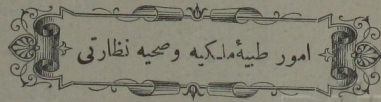 امور طبیهٔ ملکیه و صحیه نظارتی